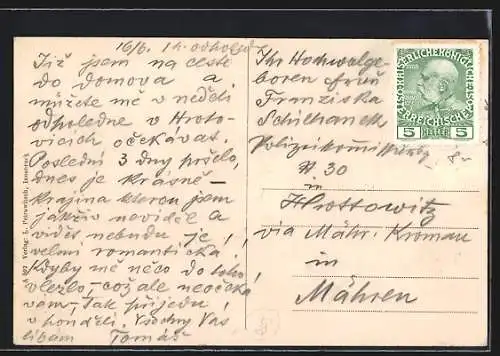 16/6. 14. odpoled
Již jsem na cestě
do domova a
můžete mě v neděli
odpoledne v Hroto-
vicích očekávat.
Poslední 3 dny pršelo,
dnes je krásně-
krajina kterou jsem
jakživ neviděl a
vidět nebudu je!
velmi romantická!
Kdyby mě něco do toho
vlezlo-což ale neočeká
vám,-Tak přijedu!
v pondělí. Všechny Vás
líbám Tomáš
Verlag: L. Peterwehech, Innsbruck
KAISERLICHEKÖNIGLICHE
ÖSTERREICHISCHE POST
5 HELLER 5
Ihr Hochwolge-
boren Frau
Franziska
Schulhanek
N 30
in
Hrottowitz
via Mähr. Kromau
in
Mähren
8